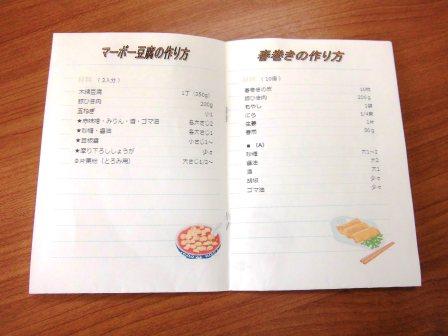 マーボー豆腐の作り方
材料（3人分）
木綿豆腐 1丁（350g）
豚ひき肉 200g
玉ねぎ 小1
★赤味噌・みりん・酒・ゴマ油 各大さじ2
★砂糖・醤油 各大さじ1
★豆板醤 小さじ1～
★摩り下ろししょうが 少々
片栗粉（とろみ用） 大さじ1/2～
春巻きの作り方
材料（10個）
春巻きの皮 10枚
豚ひき肉 200g
もやし 1袋
にら 1/4束
生姜 1片
春雨 30g
■ (A)
砂糖 大1～2
醤油 大2
酒 大1
胡椒 少々
ゴマ油 少々